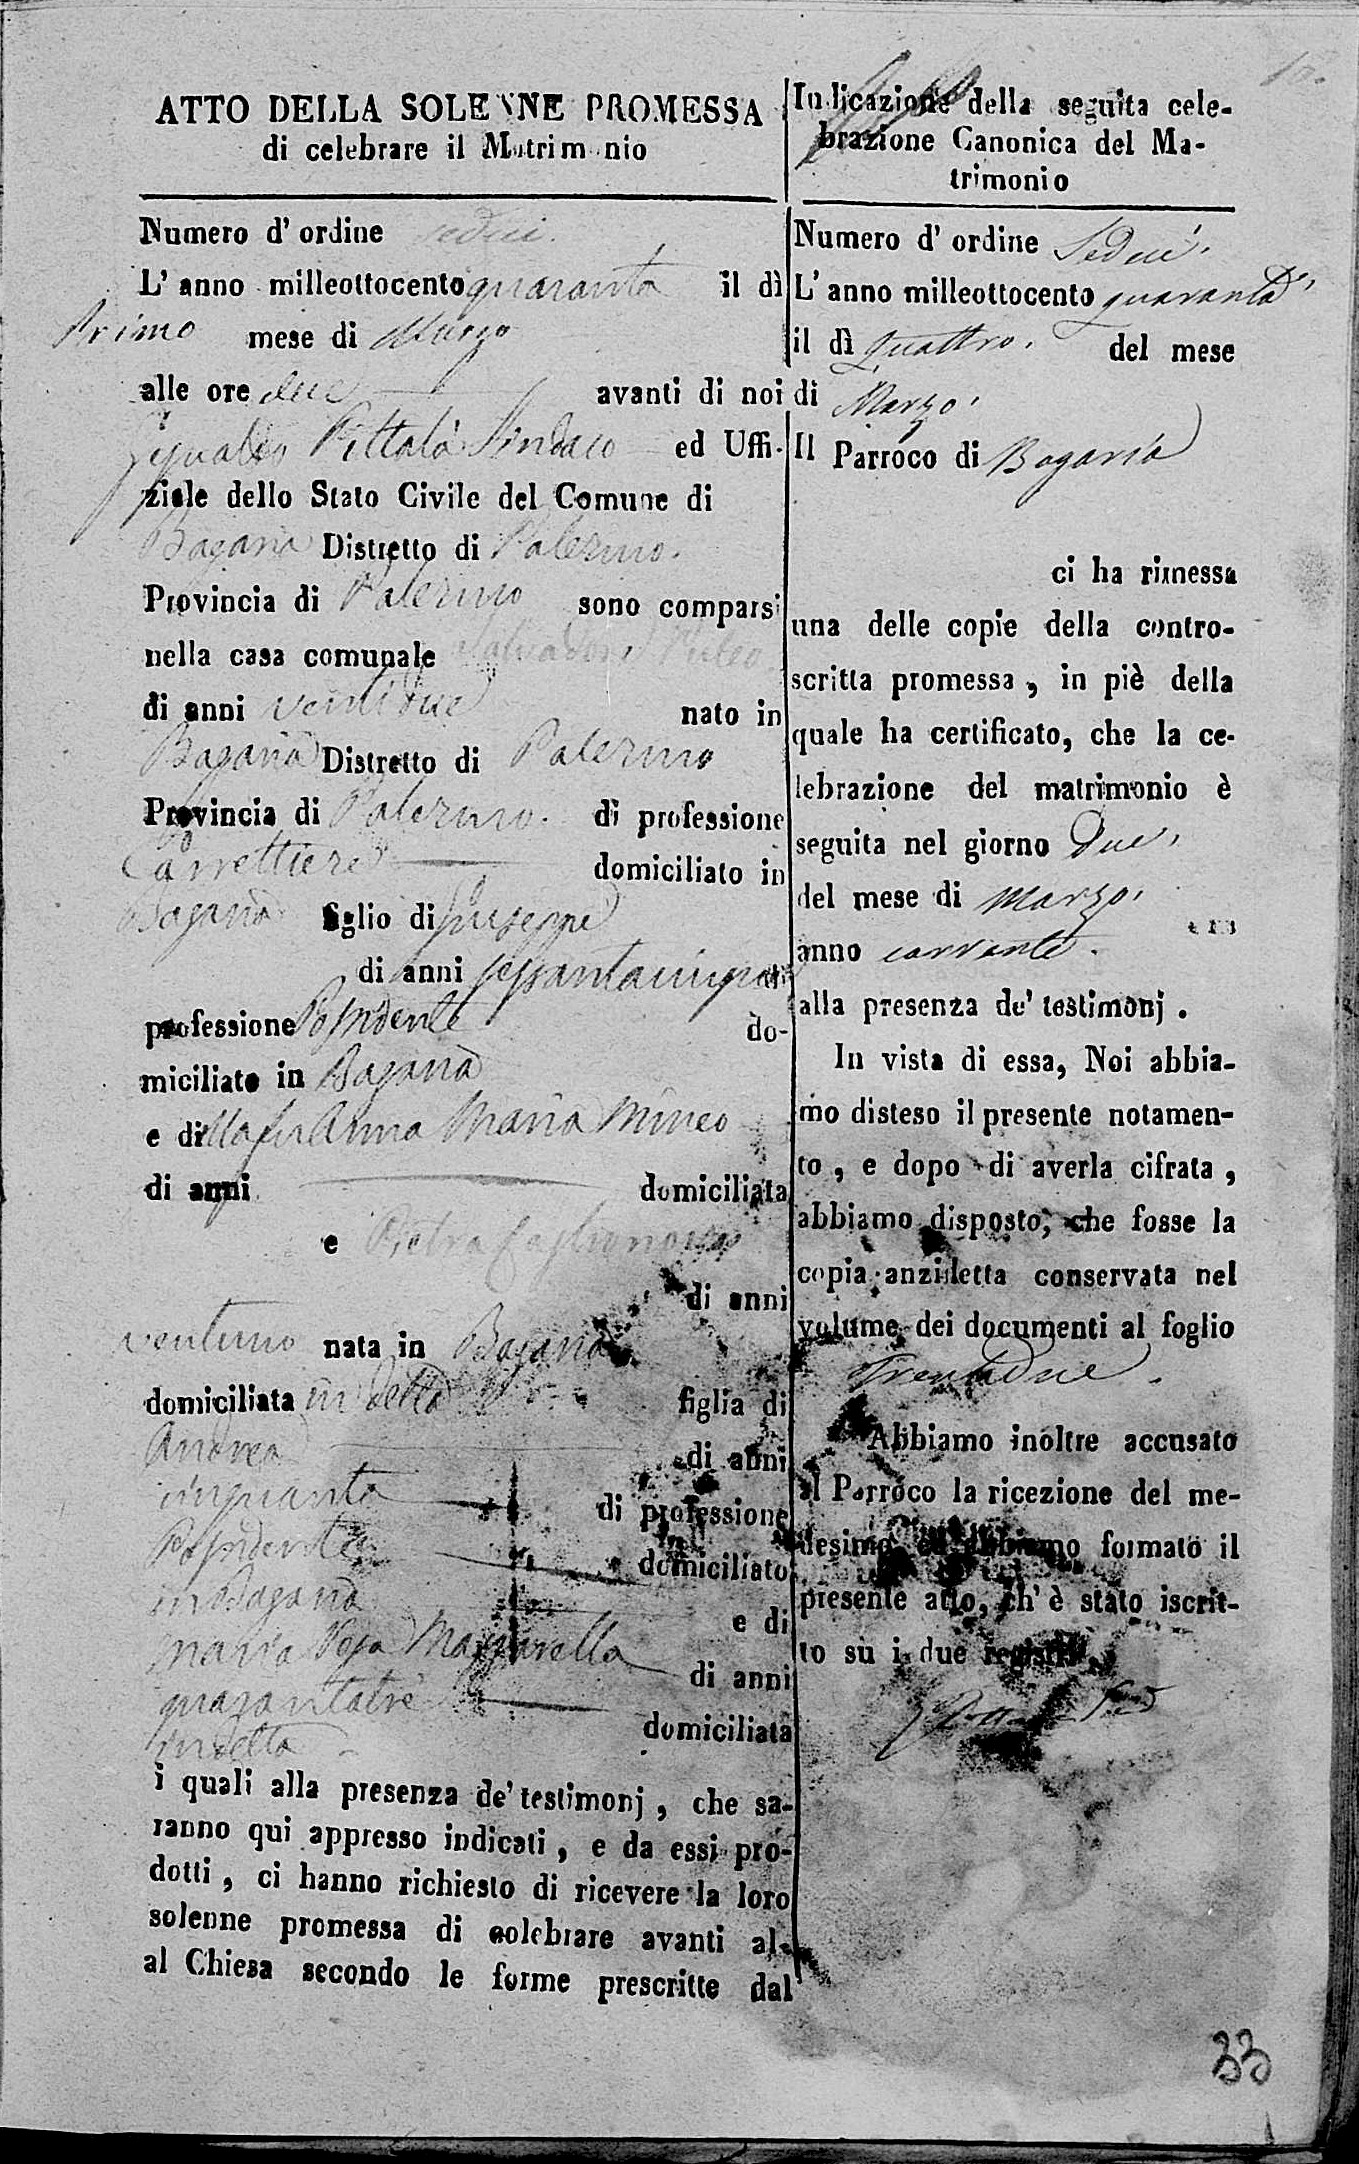 ATTO DELLA SOLENNE PROMESSA
di celebrare il Matrimonio
Numero d' ordine sedici.
L' anno milleottocento quaranta il dì
Primo mese di Marzo
alle ore due avanti di noi
Pittalà Sindaco ed Uffi-
ziale dello Stato Civile del Comune di
Bagaria Distretto di Palermo.
Provincia di Palermo sono comparsi
nella casa comunale Salvadore
di anni ventidue nato in
Bagaria Distretto di Palermo
Provincia di Palermo. di professione
Carrettiere domiciliato in
Bagaria figlio di Giuseppe
di anni sessantacinque di
professione Possidente do-
miciliato in Bagaria
e di lla fu Anna Maria Mineo
di anni domiciliata
e Pietra
di anni
ventuno nata in Bagaria
domiciliata in detta figlia di
Andrea di anni
cinquanta di professione
Possidente domiciliato
in Bagaria e di
Maria Mazzarella di anni
quarantatre domiciliata
in detta
i quali alla presenza de' testimonj , che sa-
ranno qui appresso indicati , e da essi pro-
dotti , ci hanno richiesto di ricevere la loro
solenne promessa di celebrare avanti al-
al Chiesa secondo le forme prescritte dal
Indicazione della seguita cele-
brazione Canonica del Ma-
trimonio
Numero d' ordine Sedici.
L' anno milleottocento quaranta
il dì Quattro. del mese
di Marzo.
Il Parroco di Bagaria
ci ha rimessa
una delle copie della contro-
scritta promessa , in piè della
quale ha certificato, che la ce-
lebrazione del matrimonio è
seguita nel giorno Due,
del mese di Marzo.
anno corrente.
alla presenza de' testimonj .
In vista di essa, Noi abbia-
mo disteso il presente notamen-
to , e dopo di averla cifrata ,
abbiamo disposto, che fosse la
copia anzidetta conservata nel
volume dei documenti al foglio
Trentadue.
Abbiamo inoltre accusato
al Parroco la ricezione del me-
desimo ed abbiamo formato il
presente atto, ch' è stato iscrit-
to su i due registri.
33